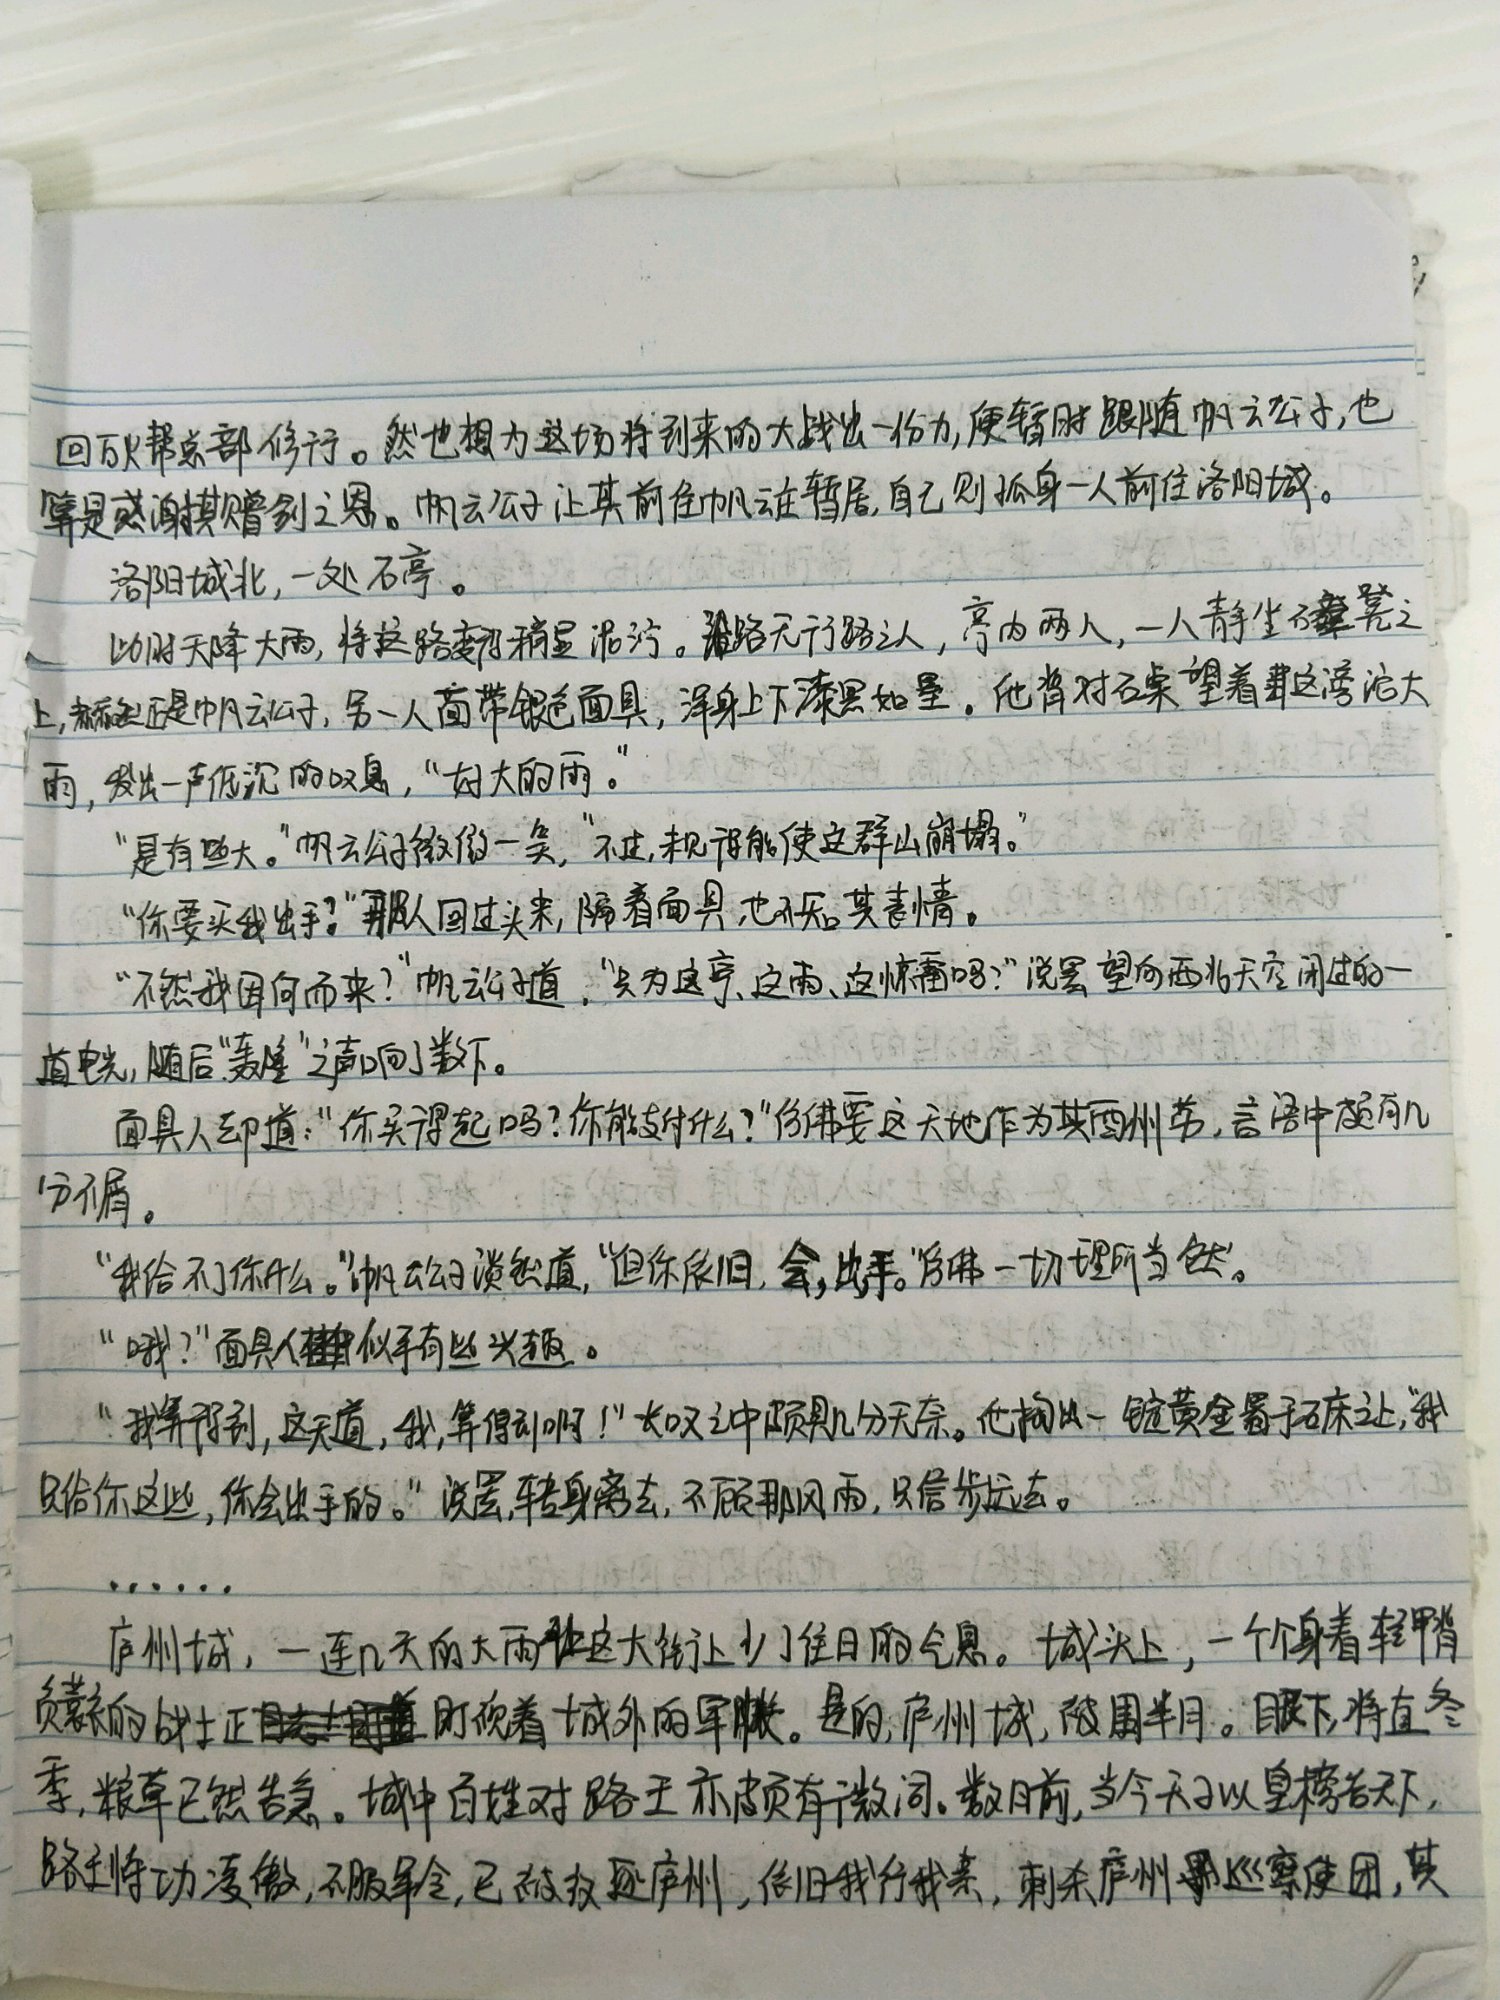 回万火帮总部修行。然也想为这场将到来的大战出一份力,便暂时跟随帆云公子,也
算是感谢其赠剑之恩。帆云公子让其前往帆云庄暂居,自己则孤身一人前往洛阳城。
洛阳城北,一处石亭。
此时天降大雨,将这路变得稍显泥泞。沿路无行路之人,亭内两人,一人静坐石凳之
上,赫然正是帆云公子,另一人面带银色面具,浑身上下漆黑如墨。他背对石桌望着这滂沱大
雨,发出一声低沉的叹息,“好大的雨。”
“是有些大。”帆云公子微微一笑,“不过,未见得能使这群山崩塌。”
“你要买我出手?”那人回过头来,隔着面具也不知其表情。
“不然我因何而来?”帆云公子道,“只为这亭、这雨、这惊雷吗?”说罢望向西北天空闪过的一
道电光,随后“轰隆”之声响了数下。
面具人却道:“你买得起吗?你能支付什么?”仿佛要这天地作为其酬劳,言语中颇有几
分不屑。
“我给不了你什么。”帆云公子淡然道,“但你依旧,会,出手。”仿佛一切理所当然。
“哦?”面具人似乎有些兴趣。
“我算得到,这天道,我,算得到啊!”长叹之中颇具几分无奈。他掏出一锭黄金置于石床之上,“我
只给你这些,你会出手的。”说罢,转身离去,不顾那风雨,只信步远去。
······
庐州城,一连几天的大雨让这大街上少了往日的气息。城头上,一个个身着轻甲背
负蓑衣的战士正盯视着城外的军帐。是的,庐州城,被围半月。眼下,将直冬
季,粮草已然告急。城中百姓对路王亦颇有微词。数月前,当今天子以皇榜告天下,
路王恃功凌傲,不服军令,已被放逐庐州,依旧我行我素,刺杀庐州巡察使团,其